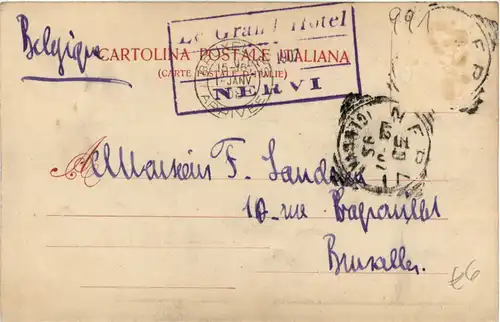 Belgique
991
Le Grand Hotel
NERVI
CARTOLINA POSTALE ITALIANA
(CARTE POSTALE D'ITALIE)
BRUXELLES
1 JANV
ARRIVÉE
A Monsieur F.
10 rue
Bruxelles.
€6